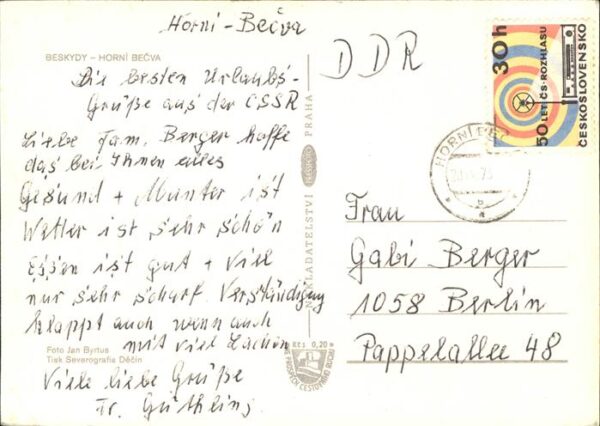 Horní-Bečva
BESKYDY – HORNÍ BEČVA
Die besten Urlaubs-
Grüße aus der CSSR
Liebe Fam. Berger hoffe
das bei Ihnen alles
Gesund + Munter ist
Wetter ist sehr schön
Essen ist gut + viel
nur sehr scharf. Verständigung
klappt auch wenn auch
mit viel Lachen
Foto Jan Byrtus
Tisk Severografia Děčín
Viele liebe Grüße
Fr. Güthling
NAKLADATELSTVÍ PRAHA
Kčs 0,20
DDR
30h
50 LET ČS. ROZHLASU
ČESKOSLOVENSKO
HORNÍ
Frau
Gabi Berger
1058 Berlin
Pappelallee 48